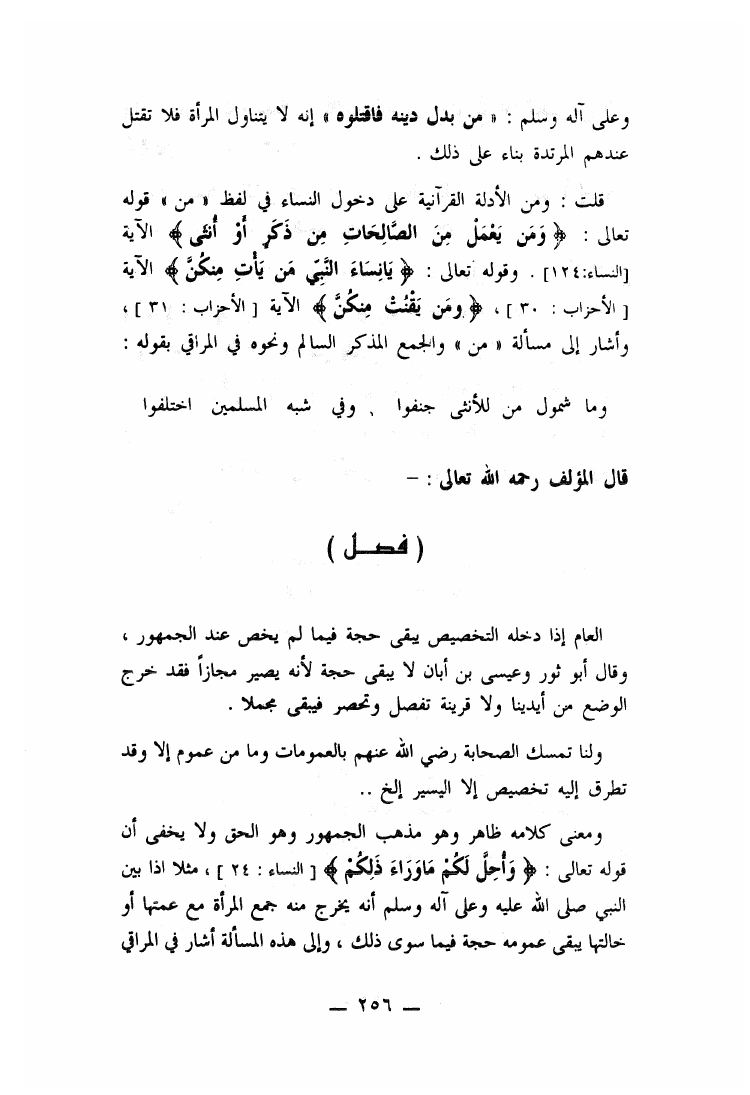 وعلى آله وسلم : « من بدل دينه فاقتلوه » إنه لا يتناول المرأة فلا تقتل
عندهم المرتدة بناء على ذلك .
قلت : ومن الأدلة القرآنية على دخول النساء في لفظ « من » قوله
تعالى : ﴿ وَمَن يَعْمَلْ مِنَ الصَّالِحَاتِ مِن ذَكَرٍ أَوْ أُنثَى ﴾ الآية
[النساء:١٢٤] . وقوله تعالى : ﴿ يَانِسَاءَ النَّبِيِّ مَن يَأْتِ مِنكُنَّ ﴾ الآية
[ الأحزاب : ٣٠ ] ، ﴿ ومَن يَقْنُتْ مِنكُنَّ ﴾ الآية [ الأحزاب : ٣١ ] ،
وأشار إلى مسألة « من » والجمع المذكر السالم ونحوه في المراقي بقوله :
وما شمول من للأنثى جنفوا . وفي شبه المسلمين اختلفوا
قال المؤلف رحمه الله تعالى : –
( فصــل )
العام إذا دخله التخصيص يبقى حجة فيما لم يخص عند الجمهور ،
وقال أبو ثور وعيسى بن أبان لا يبقى حجة لأنه يصير مجازاً فقد خرج
الوضع من أيدينا ولا قرينة تفصل وتحصر فيبقى مجملا .
ولنا تمسك الصحابة رضي الله عنهم بالعمومات وما من عموم إلا وقد
تطرق إليه تخصيص إلا اليسير إلخ ..
ومعنى كلامه ظاهر وهو مذهب الجمهور وهو الحق ولا يخفى أن
قوله تعالى : ﴿ وَأُحِلَّ لَكُمْ مَاوَرَاءَ ذَلِكُمْ ﴾ [ النساء : ٢٤ ] ، مثلا اذا بين
النبي صلى الله عليه وعلى آله وسلم أنه يخرج منه جمع المرأة مع عمتها أو
خالتها يبقى عمومه حجة فيما سوى ذلك ، وإلى هذه المسألة أشار في المراقي
— ٢٥٦ —